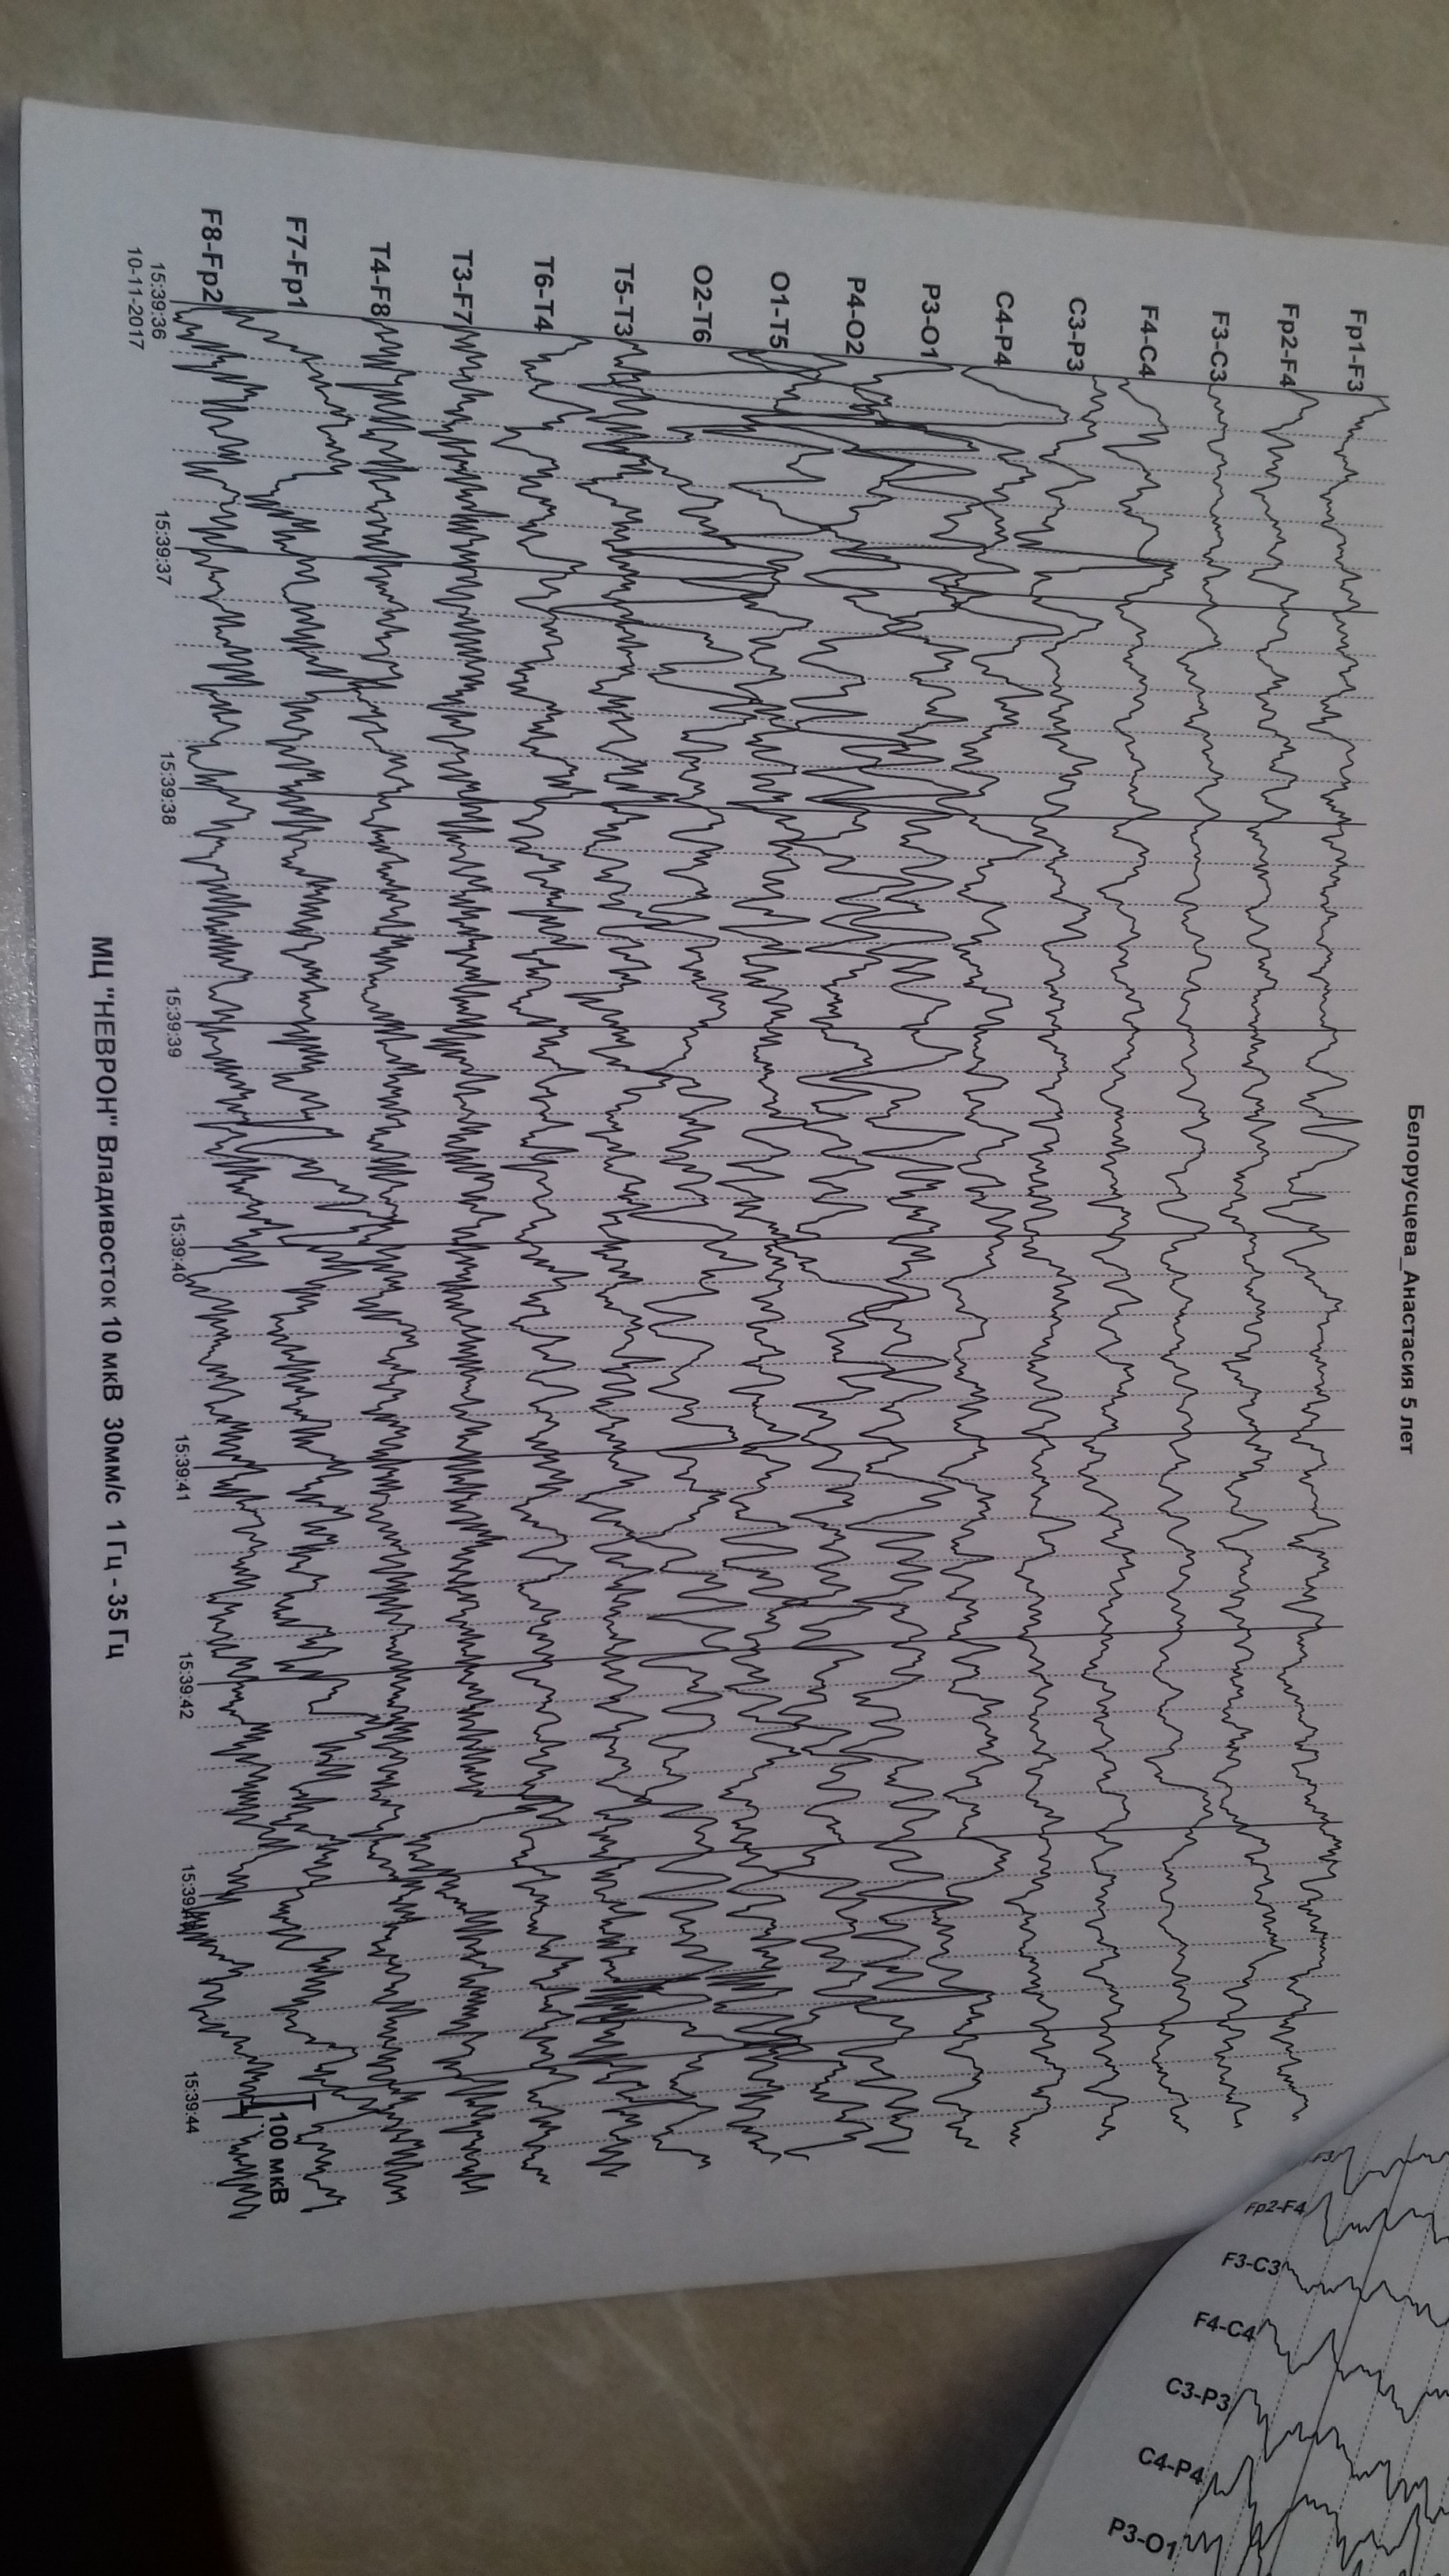 Белорусцева_Анастасия 5 лет
Fp1-F3
Fp2-F4
F3-C3
F4-C4
C3-P3
C4-P4
P3-O1
P4-O2
O1-T5
O2-T6
T5-T3
T6-T4
T3-F7
T4-F8
F7-Fp1
F8-Fp2
100 мкВ
15:39:36 15:39:37 15:39:38 15:39:39 15:39:40 15:39:41 15:39:42 15:39:44
10-11-2017
МЦ "НЕВРОН" Владивосток 10 мкВ 30мм/с 1 Гц - 35 Гц
Fp2-F4
F3-C3
F4-C4
C3-P3
C4-P4
P3-O1